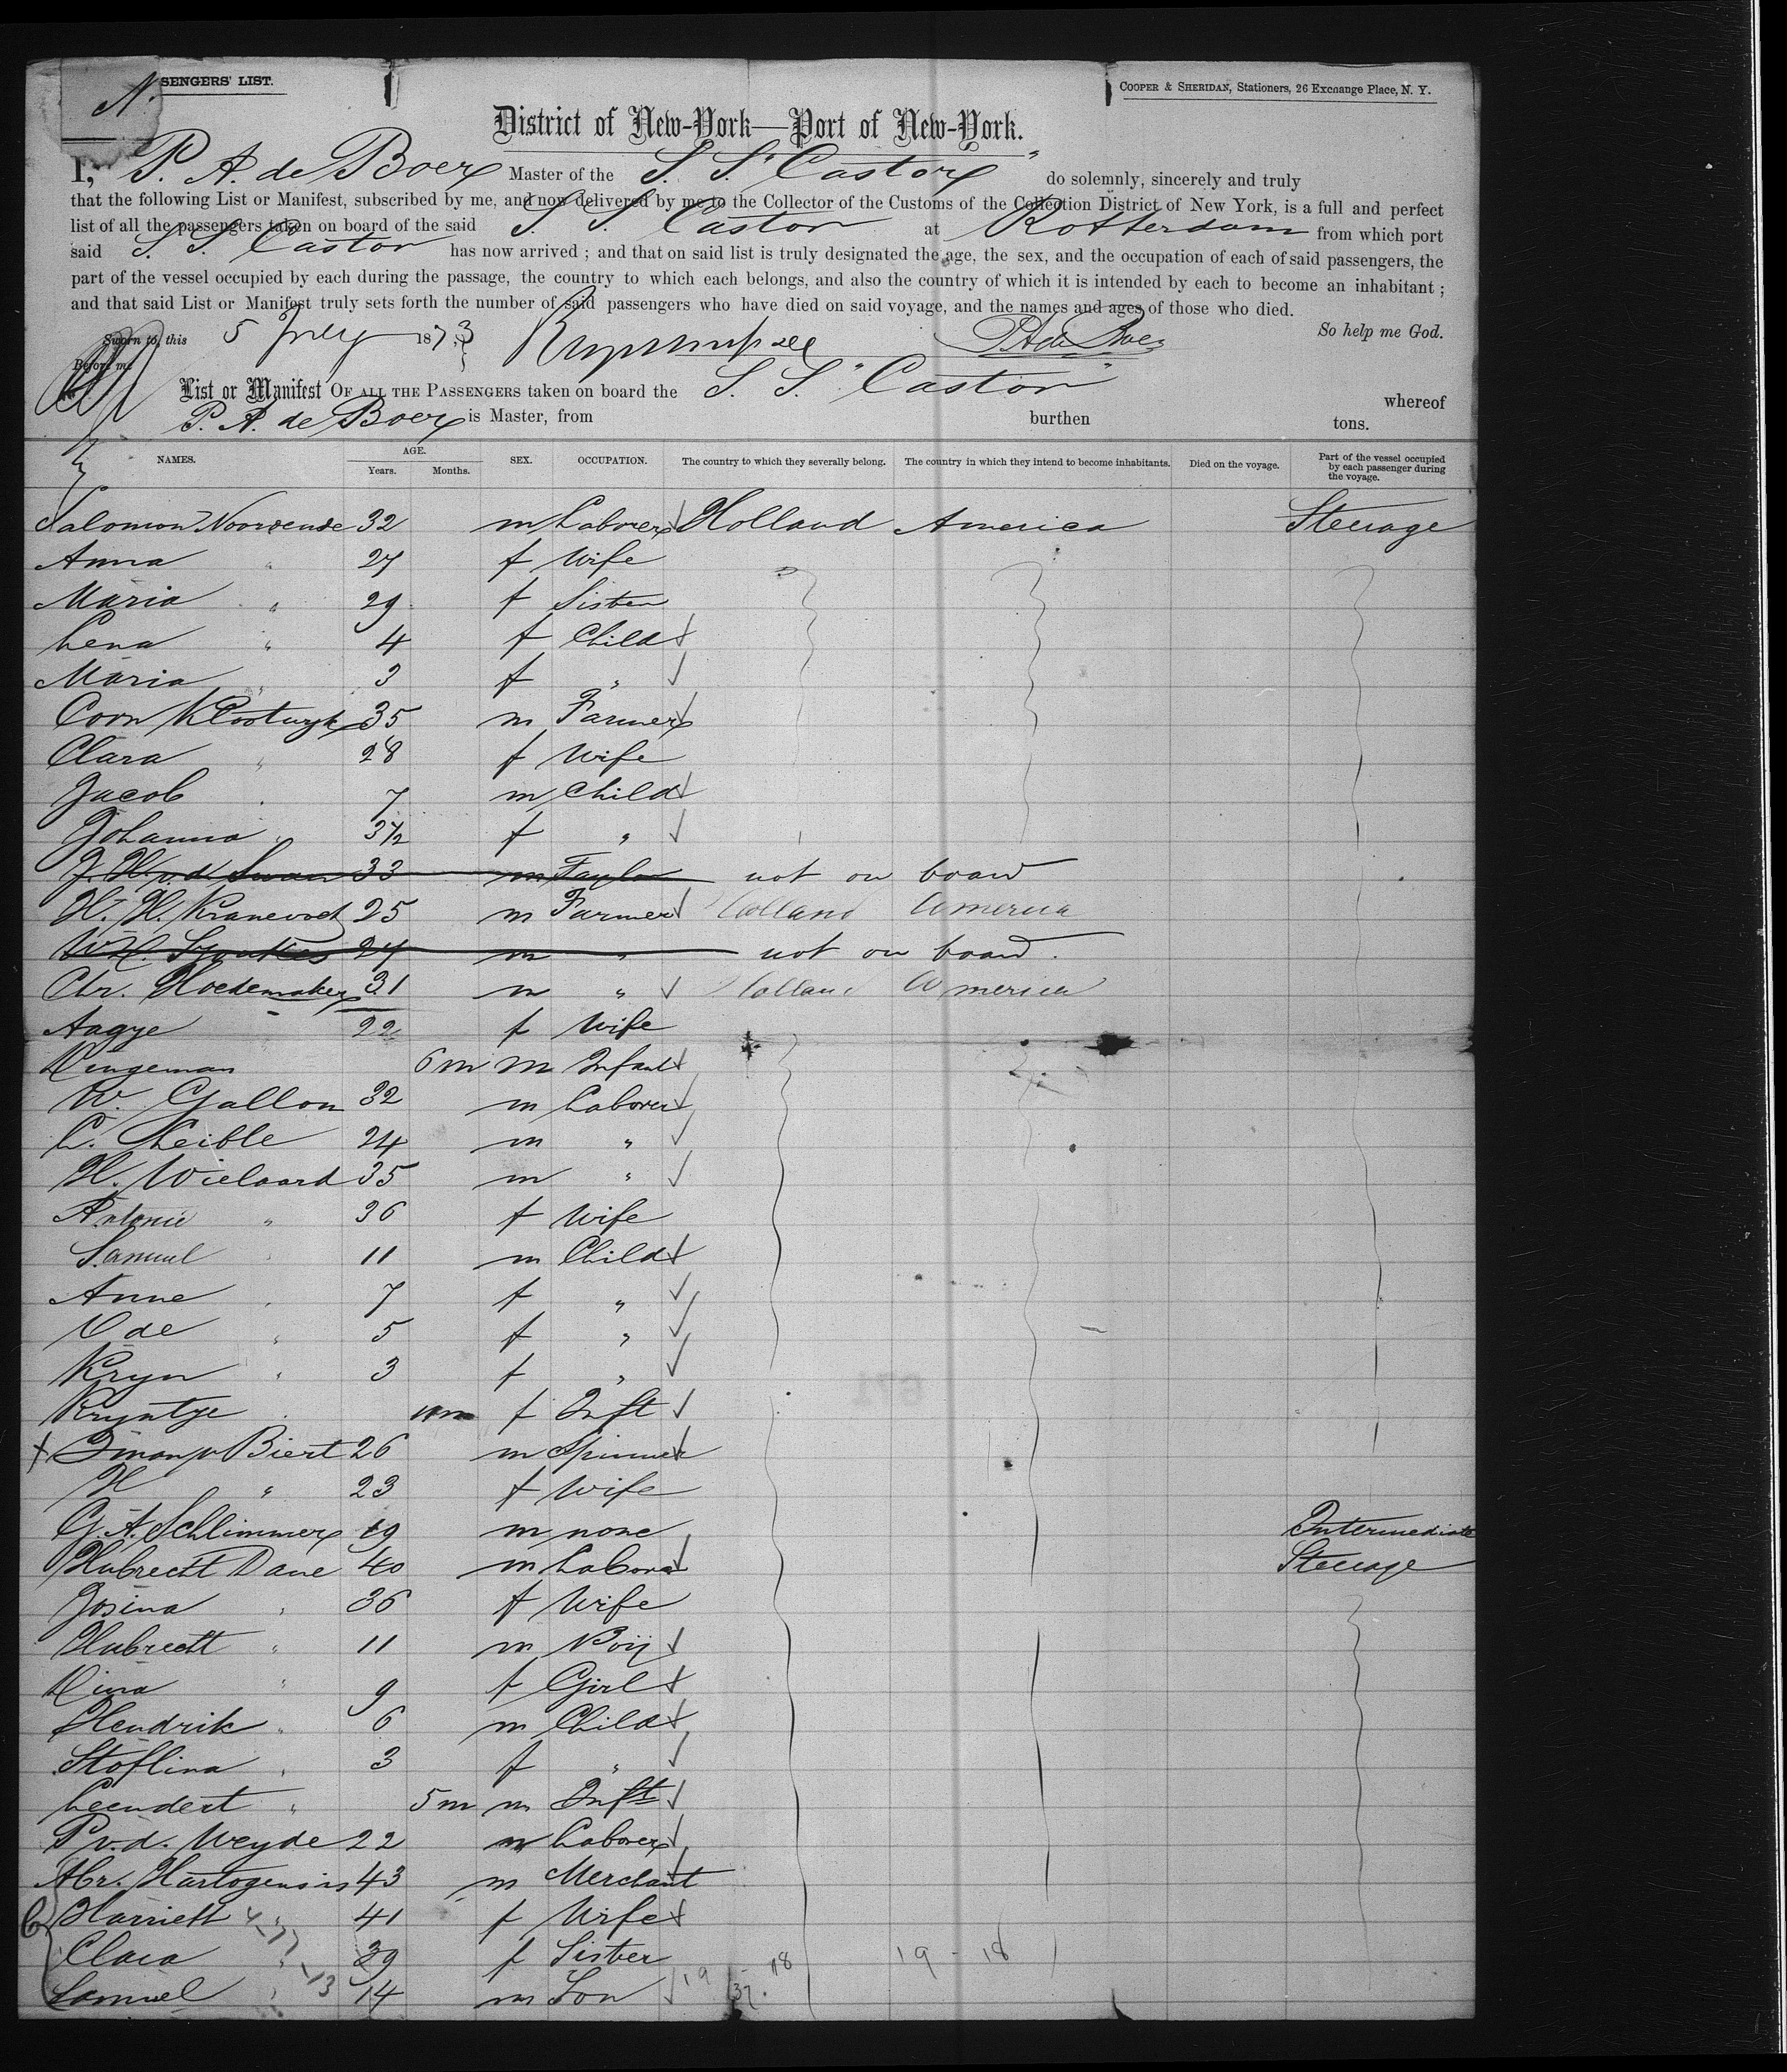 N.
SENGERS' LIST.
COOPER & SHERIDAN, Stationers, 26 Exchange Place, N. Y.
District of New-York—Port of New-York.
I, P. A. de Boer Master of the S. S. "Castor" do solemnly, sincerely and truly
that the following List or Manifest, subscribed by me, and now delivered by me to the Collector of the Customs of the Collection District of New York, is a full and perfect
list of all the passengers taken on board of the said S. S. Castor at Rotterdam from which port
said S. S. Castor has now arrived ; and that on said list is truly designated the age, the sex, and the occupation of each of said passengers, the
part of the vessel occupied by each during the passage, the country to which each belongs, and also the country of which it is intended by each to become an inhabitant ;
and that said List or Manifest truly sets forth the number of said passengers who have died on said voyage, and the names and ages of those who died.
Sworn to, this 5 July 1873 P A de Boer So help me God.
Before me
List or Manifest OF ALL THE PASSENGERS taken on board the S. S. "Castor" whereof
P. A. de Boer is Master, from burthen tons.
NAMES. AGE. Years. Months. SEX. OCCUPATION. The country to which they severally belong. The country in which they intend to become inhabitants. Died on the voyage. Part of the vessel occupied by each passenger during the voyage.
Salomon 32 m Laborer Holland America Steerage
Anna " 27 f Wife
Maria " 29 f Sister
Lena " 4 f Child
Maria " 3 f "
Corn Klootwyk 35 m Farmer
Clara " 28 f Wife
Jacob " 7 m Child
Johanna " 3½ f "
J. H. v. d. 33 m Taylor not on board
H. H. 25 m Farmer Holland America
24 m " not on board.
Chr. Hoedemaker 31 m " Holland America
Aagye 22 f Wife
6 m m Infant
W. Gallon 32 m Laborer
L. Leible 24 m "
H. Wielaard 35 m "
Antonie " 36 f Wife
Samuel " 11 m Child
Anne " 7 f "
5 f "
Kryn " 3 f "
Kryntge " f Inft
Biert 26 m Spinner
H " 23 f Wife
G. A. Schlimmer 19 m none Intermediate
Hubrecht Dane 40 m Laborer Steerage
Josina " 36 f Wife
Hubrecht " 11 m Boy
Dina " 9 f Girl
Hendrik " 6 m Child
Stoflina " 3 f "
Leendert " 5 m m Inft
P v. d. Weyde 22 m Laborer
Abr. Hartogensis 43 m Merchant
Harriett " 41 f Wife
Clara " 39 f Sister 18 19 - 18
Samuel " 14 m Son 19 37.